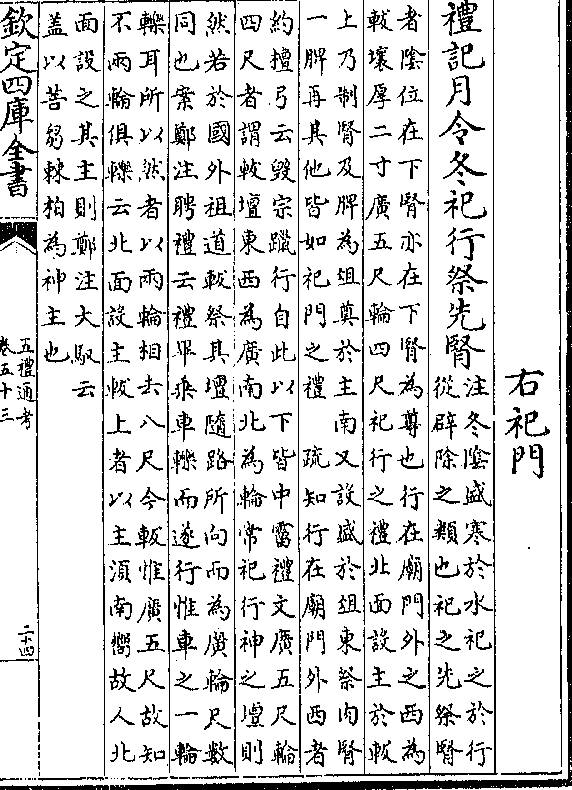 右祀門
禮記月令冬祀行祭先腎
注冬陰盛寒於水祀之於行
從辟除之類也祀之先祭腎
者陰位在下腎亦在下腎為尊也行在廟門外之西為
軷壤厚二寸廣五尺輪四尺祀行之禮北面設主於軷
上乃制腎及脾為俎奠於主南又設盛於俎東祭肉腎
一脾再其他皆如祀門之禮 疏知行在廟門外西者
約檀弓云毀宗躐行自此以下皆中霤禮文廣五尺輪
四尺者謂軷壇東西為廣南北為輪常祀行神之壇則
然若於國外祖道軷祭其壇隨路所向而為廣輪尺數
同也案鄭注聘禮云禮畢乘車轢而遂行惟車之一輪
轢耳所以然者以兩輪相去八尺今軷惟廣五尺故知
不兩輪俱轢云北面設主軷上者以主須南嚮故人北
面設之其主則鄭注大馭云
蓋以菩芻棘柏為神主也
欽定四庫全書
五禮通考
卷五十三
二十四